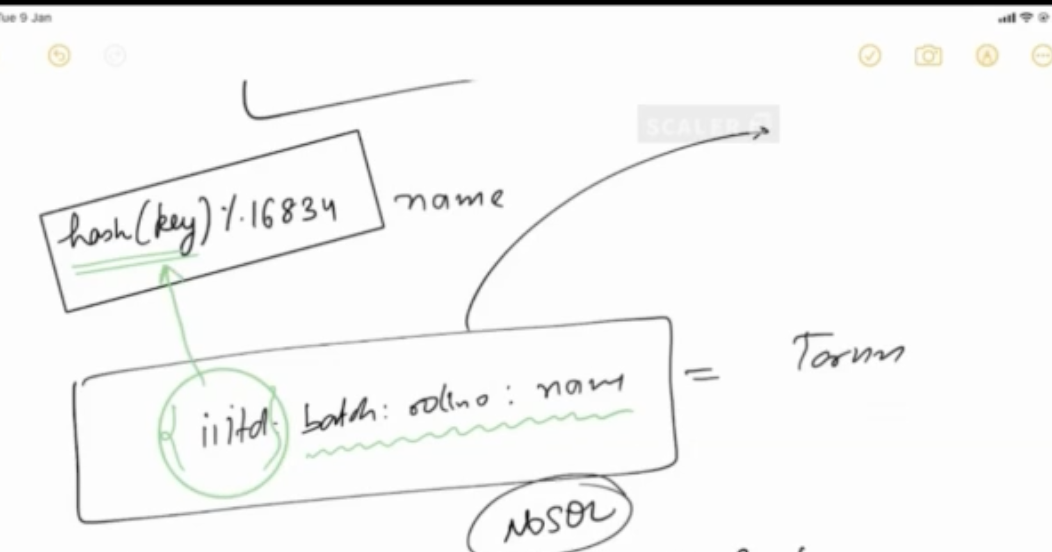 Tue 9 Jan
SCALER
hash(key) %.16834 name
{iiitd}: batch: rollno: name =
NoSQL